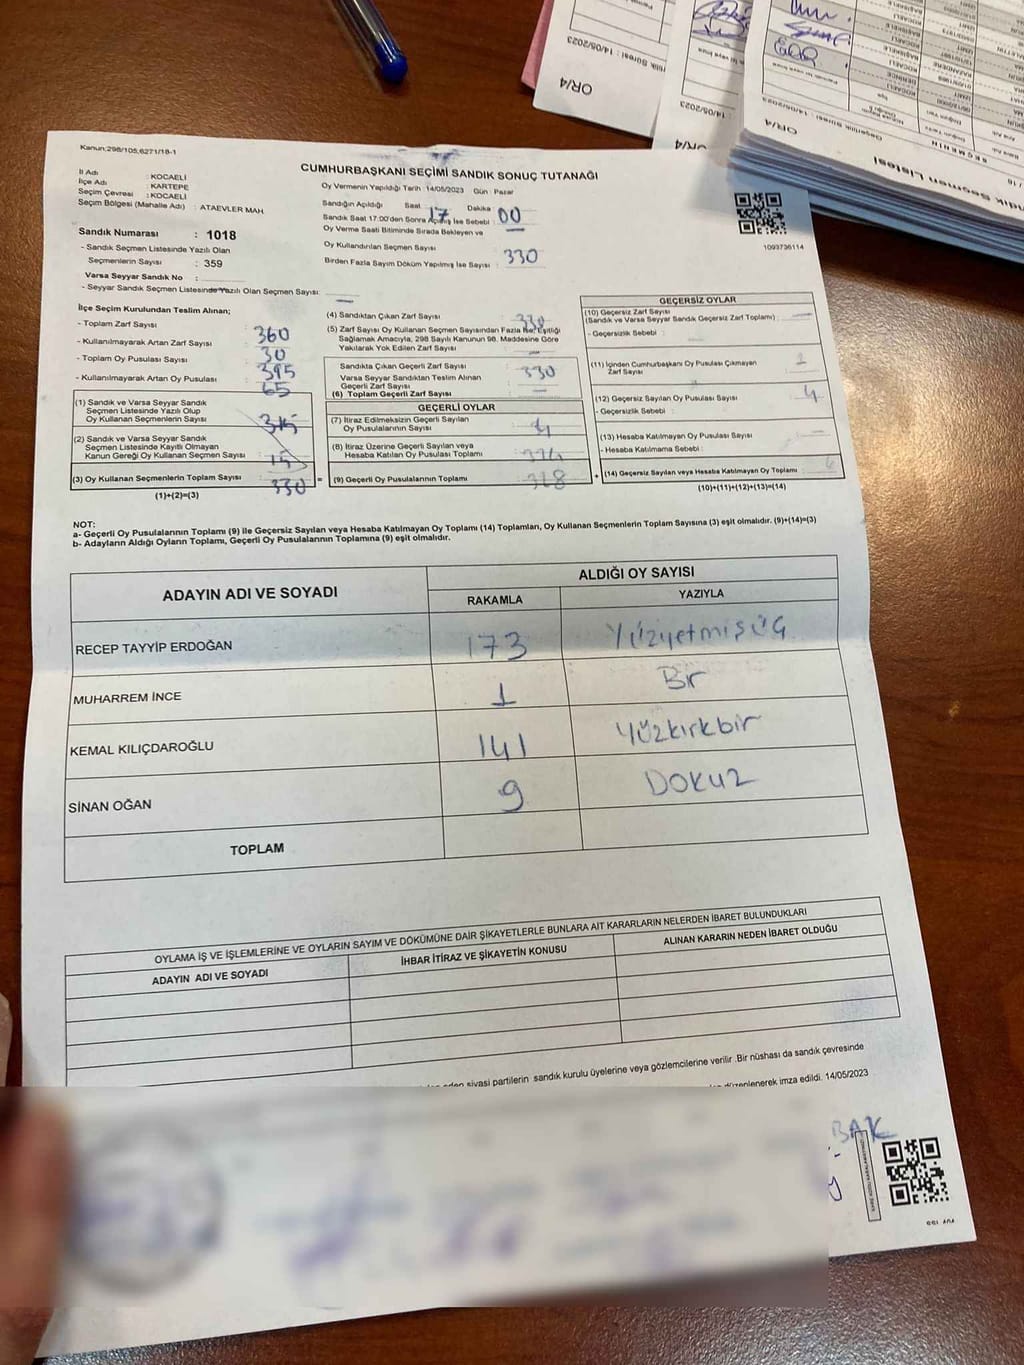 Kanun;298/105;6271/18-1
CUMHURBAŞKANI SEÇİMİ SANDIK SONUÇ TUTANAĞI
İl Adı : KOCAELİ
İlçe Adı : KARTEPE
Seçim Çevresi : KOCAELİ
Seçim Bölgesi (Mahalle Adı) : ATAEVLER MAH
Sandık Numarası : 1018
- Sandık Seçmen Listesinde Yazılı Olan
Seçmenlerin Sayısı : 359
Varsa Seyyar Sandık No :
- Seyyar Sandık Seçmen Listesinde Yazılı Olan Seçmen Sayısı: —
Oy Vermenin Yapıldığı Tarih : 14/05/2023 Gün : Pazar
Sandığın Açıldığı Saat 17 Dakika : 00
Sandık Saat 17:00'den Sonra Açılmış İse Sebebi : —
Oy Verme Saati Bitiminde Sırada Bekleyen ve
Oy Kullandırılan Seçmen Sayısı
Birden Fazla Sayım Döküm Yapılmış İse Sayısı : 330
1093736114
İlçe Seçim Kurulundan Teslim Alınan;
- Toplam Zarf Sayısı : 360
- Kullanılmayarak Artan Zarf Sayısı : 30
- Toplam Oy Pusulası Sayısı : 395
- Kullanılmayarak Artan Oy Pusulası : 65
(1) Sandık ve Varsa Seyyar Sandık
Seçmen Listesinde Yazılı Olup
Oy Kullanan Seçmenlerin Sayısı : 315
(2) Sandık ve Varsa Seyyar Sandık
Seçmen Listesinde Kayıtlı Olmayan
Kanun Gereği Oy Kullanan Seçmen Sayısı : 15
(3) Oy Kullanan Seçmenlerin Toplam Sayısı : 330
(1)+(2)=(3)
(4) Sandıktan Çıkan Zarf Sayısı : 330
(5) Zarf Sayısı Oy Kullanan Seçmen Sayısından Fazla İse, Eşitliği
Sağlamak Amacıyla, 298 Sayılı Kanunun 98. Maddesine Göre
Yakılarak Yok Edilen Zarf Sayısı : —
Sandıkta Çıkan Geçerli Zarf Sayısı : 330
Varsa Seyyar Sandıktan Teslim Alınan
Geçerli Zarf Sayısı
(6) Toplam Geçerli Zarf Sayısı : —
GEÇERLİ OYLAR
(7) İtiraz Edilmeksizin Geçerli Sayılan
Oy Pusulalarının Sayısı :
(8) İtiraz Üzerine Geçerli Sayılan veya
Hesaba Katılan Oy Pusulası Toplamı : 324
(9) Geçerli Oy Pusulalarının Toplamı :
GEÇERSİZ OYLAR
(10) Geçersiz Zarf Sayısı
(Sandık ve Varsa Seyyar Sandık Geçersiz Zarf Toplamı) : —
- Geçersizlik Sebebi :
(11) İçinden Cumhurbaşkanı Oy Pusulası Çıkmayan
Zarf Sayısı : 2
(12) Geçersiz Sayılan Oy Pusulası Sayısı : 4
- Geçersizlik Sebebi :
(13) Hesaba Katılmayan Oy Pusulası Sayısı : —
- Hesaba Katılmama Sebebi :
(14) Geçersiz Sayılan veya Hesaba Katılmayan Oy Toplamı : 6
(10)+(11)+(12)+(13)=(14)
NOT:
a- Geçerli Oy Pusulalarının Toplamı (9) ile Geçersiz Sayılan veya Hesaba Katılmayan Oy Toplamı (14) Toplamları, Oy Kullanan Seçmenlerin Toplam Sayısına (3) eşit olmalıdır. (9)+(14)=(3)
b- Adayların Aldığı Oyların Toplamı, Geçerli Oy Pusulalarının Toplamına (9) eşit olmalıdır.
ADAYIN ADI VE SOYADI
ALDIĞI OY SAYISI
RAKAMLA YAZIYLA
RECEP TAYYİP ERDOĞAN 173 Yüzyetmişüç
MUHARREM İNCE 1 Bir
KEMAL KILIÇDAROĞLU 141 Yüzkırkbir
SİNAN OĞAN 9 Dokuz
TOPLAM
OYLAMA İŞ VE İŞLEMLERİNE VE OYLARIN SAYIM VE DÖKÜMÜNE DAİR ŞİKAYETLERLE BUNLARA AİT KARARLARIN NELERDEN İBARET BULUNDUKLARI
ADAYIN ADI VE SOYADI İHBAR İTİRAZ VE ŞİKAYETİN KONUSU ALINAN KARARIN NEDEN İBARET OLDUĞU
eden siyasi partilerin sandık kurulu üyelerine veya gözlemcilerine verilir .Bir nüshası da sandık çevresinde
düzenlenerek imza edildi. 14/05/2023